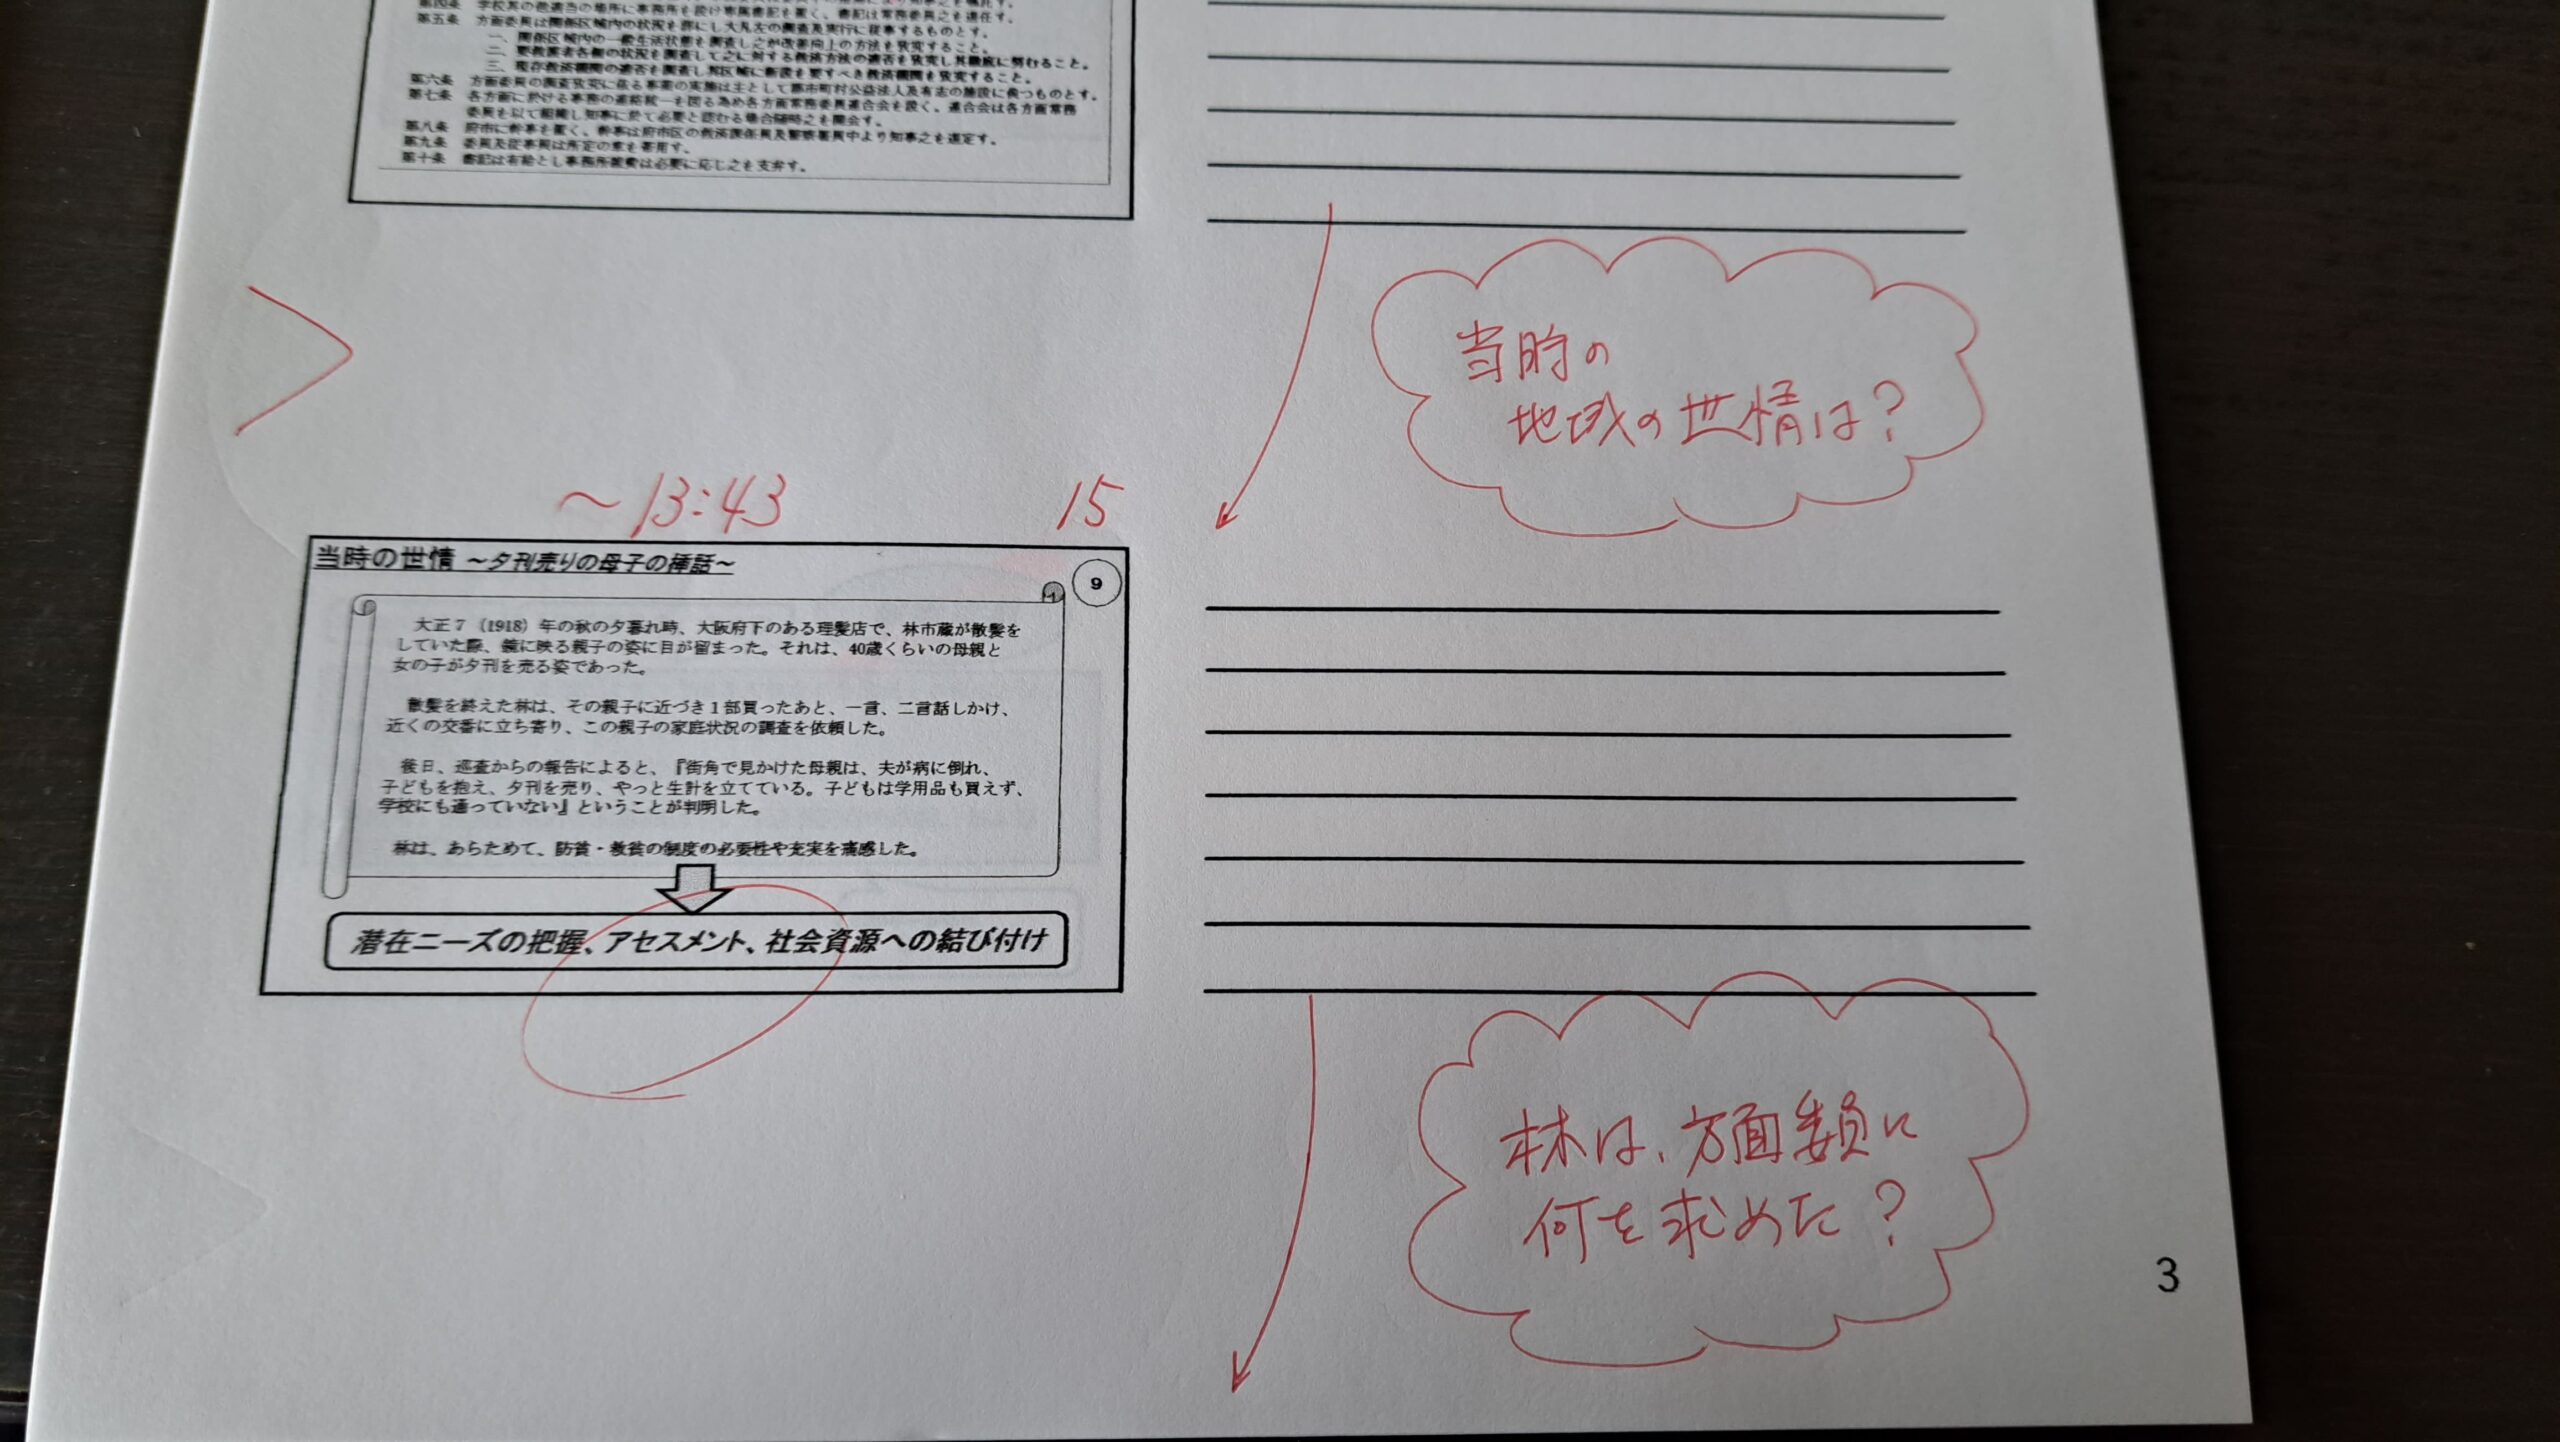 第四条 学校其の他適当の場所に事務所を設け専属書記を置く、書記は常務委員之を選任す。
第五条 方面委員は関係区域内の状況を詳にし大凡左の調査及実行に従事するものとす。
一、関係区域内の一般生活状態を調査し之が改善向上の方法を攷究すること。
二、要救護者各個の状況を調査して之に対する救済方法の適否を攷究し其徹底に努むること。
三、現存救済機関の適否を調査し其区域に新設を要すべき救済機関を攷究すること。
第六条 方面委員の調査攷究に依る事業の実施は主として郡市町村公益法人及有志の施設に俟つものとす。
第七条 各方面に於ける事務の連絡統一を図る為め各方面常務委員連合会を設く、連合会は各方面常務
委員を以て組織し知事に於て必要と認むる場合随時之を開会す。
第八条 府市に幹事を置く、幹事は府市区の救済課係員及警察署員中より知事之を選定す。
第九条 委員及従事員は所定の章を帯用す。
第十条 書記は有給とし事務所経費は必要に応じ之を支弁す。
当時の
地域の世情は？
～13:43
15
当時の世情 ～夕刊売りの母子の挿話～
9
大正７（1918）年の秋の夕暮れ時、大阪府下のある理髪店で、林市蔵が散髪を
していた際、鏡に映る親子の姿に目が留まった。それは、40歳くらいの母親と
女の子が夕刊を売る姿であった。
散髪を終えた林は、その親子に近づき１部買ったあと、一言、二言話しかけ、
近くの交番に立ち寄り、この親子の家庭状況の調査を依頼した。
後日、巡査からの報告によると、『街角で見かけた母親は、夫が病に倒れ、
子どもを抱え、夕刊を売り、やっと生計を立てている。子どもは学用品も買えず、
学校にも通っていない』ということが判明した。
林は、あらためて、防貧・救貧の制度の必要性や充実を痛感した。
潜在ニーズの把握、アセスメント、社会資源への結び付け
林は、方面委員に
何を求めた？
3